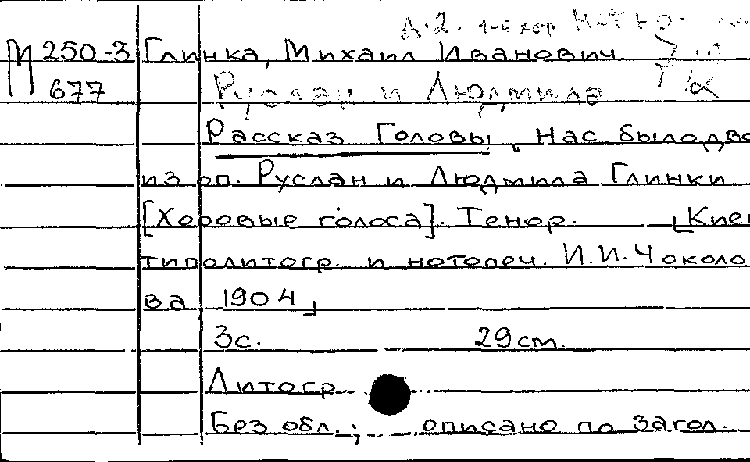 Д.2. 1-й хор
М 250-3 Глинка, Михаил Иванович
677 Руслан и Людмила
Рассказ Головы. Нас было дво
из оп. Руслан и Людмила Глинки
[Хоровые голоса]. Тенор. [Киев
типолитогр. и нотопеч. И.И. Чоколо
ва 1904]
3с. 29см.
Литогр.
Без обл.; описано по загол.